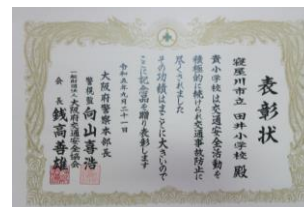 表彰状
寝屋川市立 田井小学校 殿
貴小学校は交通安全活動を
積極的に続けられ交通事故防止に
尽くされました
その功績はまことに大きいので
ここに記念品を贈り表彰します
令和五年九月二十一日
大阪府警察本部長
警視監 向山喜浩
一般財団法人 大阪府交通安全協会
会長 錢高善雄